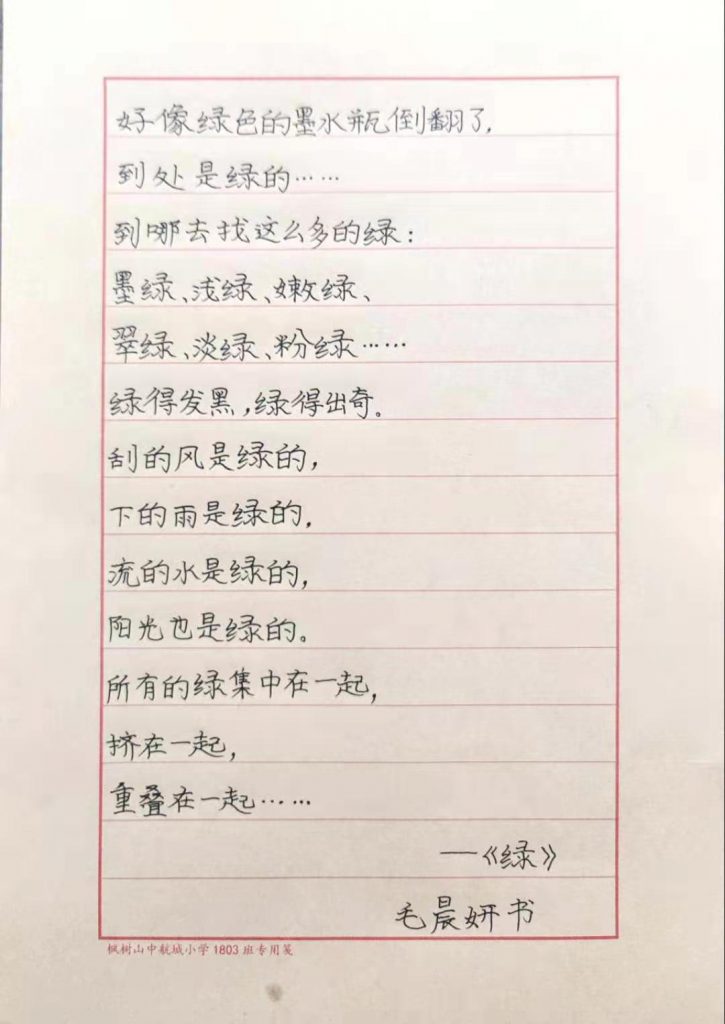 好像绿色的墨水瓶倒翻了,
到处是绿的……
到哪去找这么多的绿:
墨绿、浅绿、嫩绿、
翠绿、淡绿、粉绿……
绿得发黑,绿得出奇。
刮的风是绿的,
下的雨是绿的,
流的水是绿的,
阳光也是绿的。
所有的绿集中在一起,
挤在一起,
重叠在一起……
——《绿》
毛晨妍书
枫树山中航城小学1803班专用笺